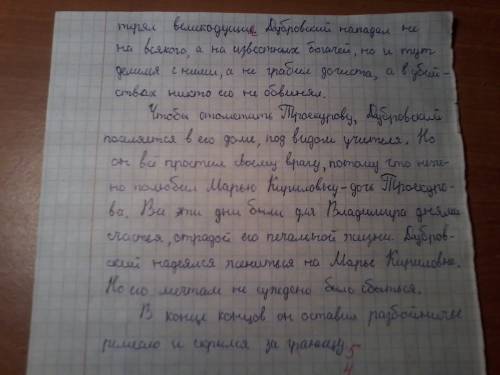 терял великодушие. Дубровский нападал не
на всякого, а на известных богачей, но и тут
делился с ними, а не грабил дочиста, а в убий-
ствах никто его не обвинял.
Чтобы отомстить Троекурову, Дубровский
поселяется в его доме, под видом учителя. Но
он всё простил своему врагу, потому что неча-
но полюбил Марью Кириловну - дочь Троекуро-
ва. Все эти дни были для Владимира днями
счастья, отрадой его печальной жизни. Дубров-
ский надеялся жениться на Марье Кириловне.
Но его мечтам не суждено было сбыться.
В конце концов он оставил разбойничье
ремесло и скрылся за границу
5
4